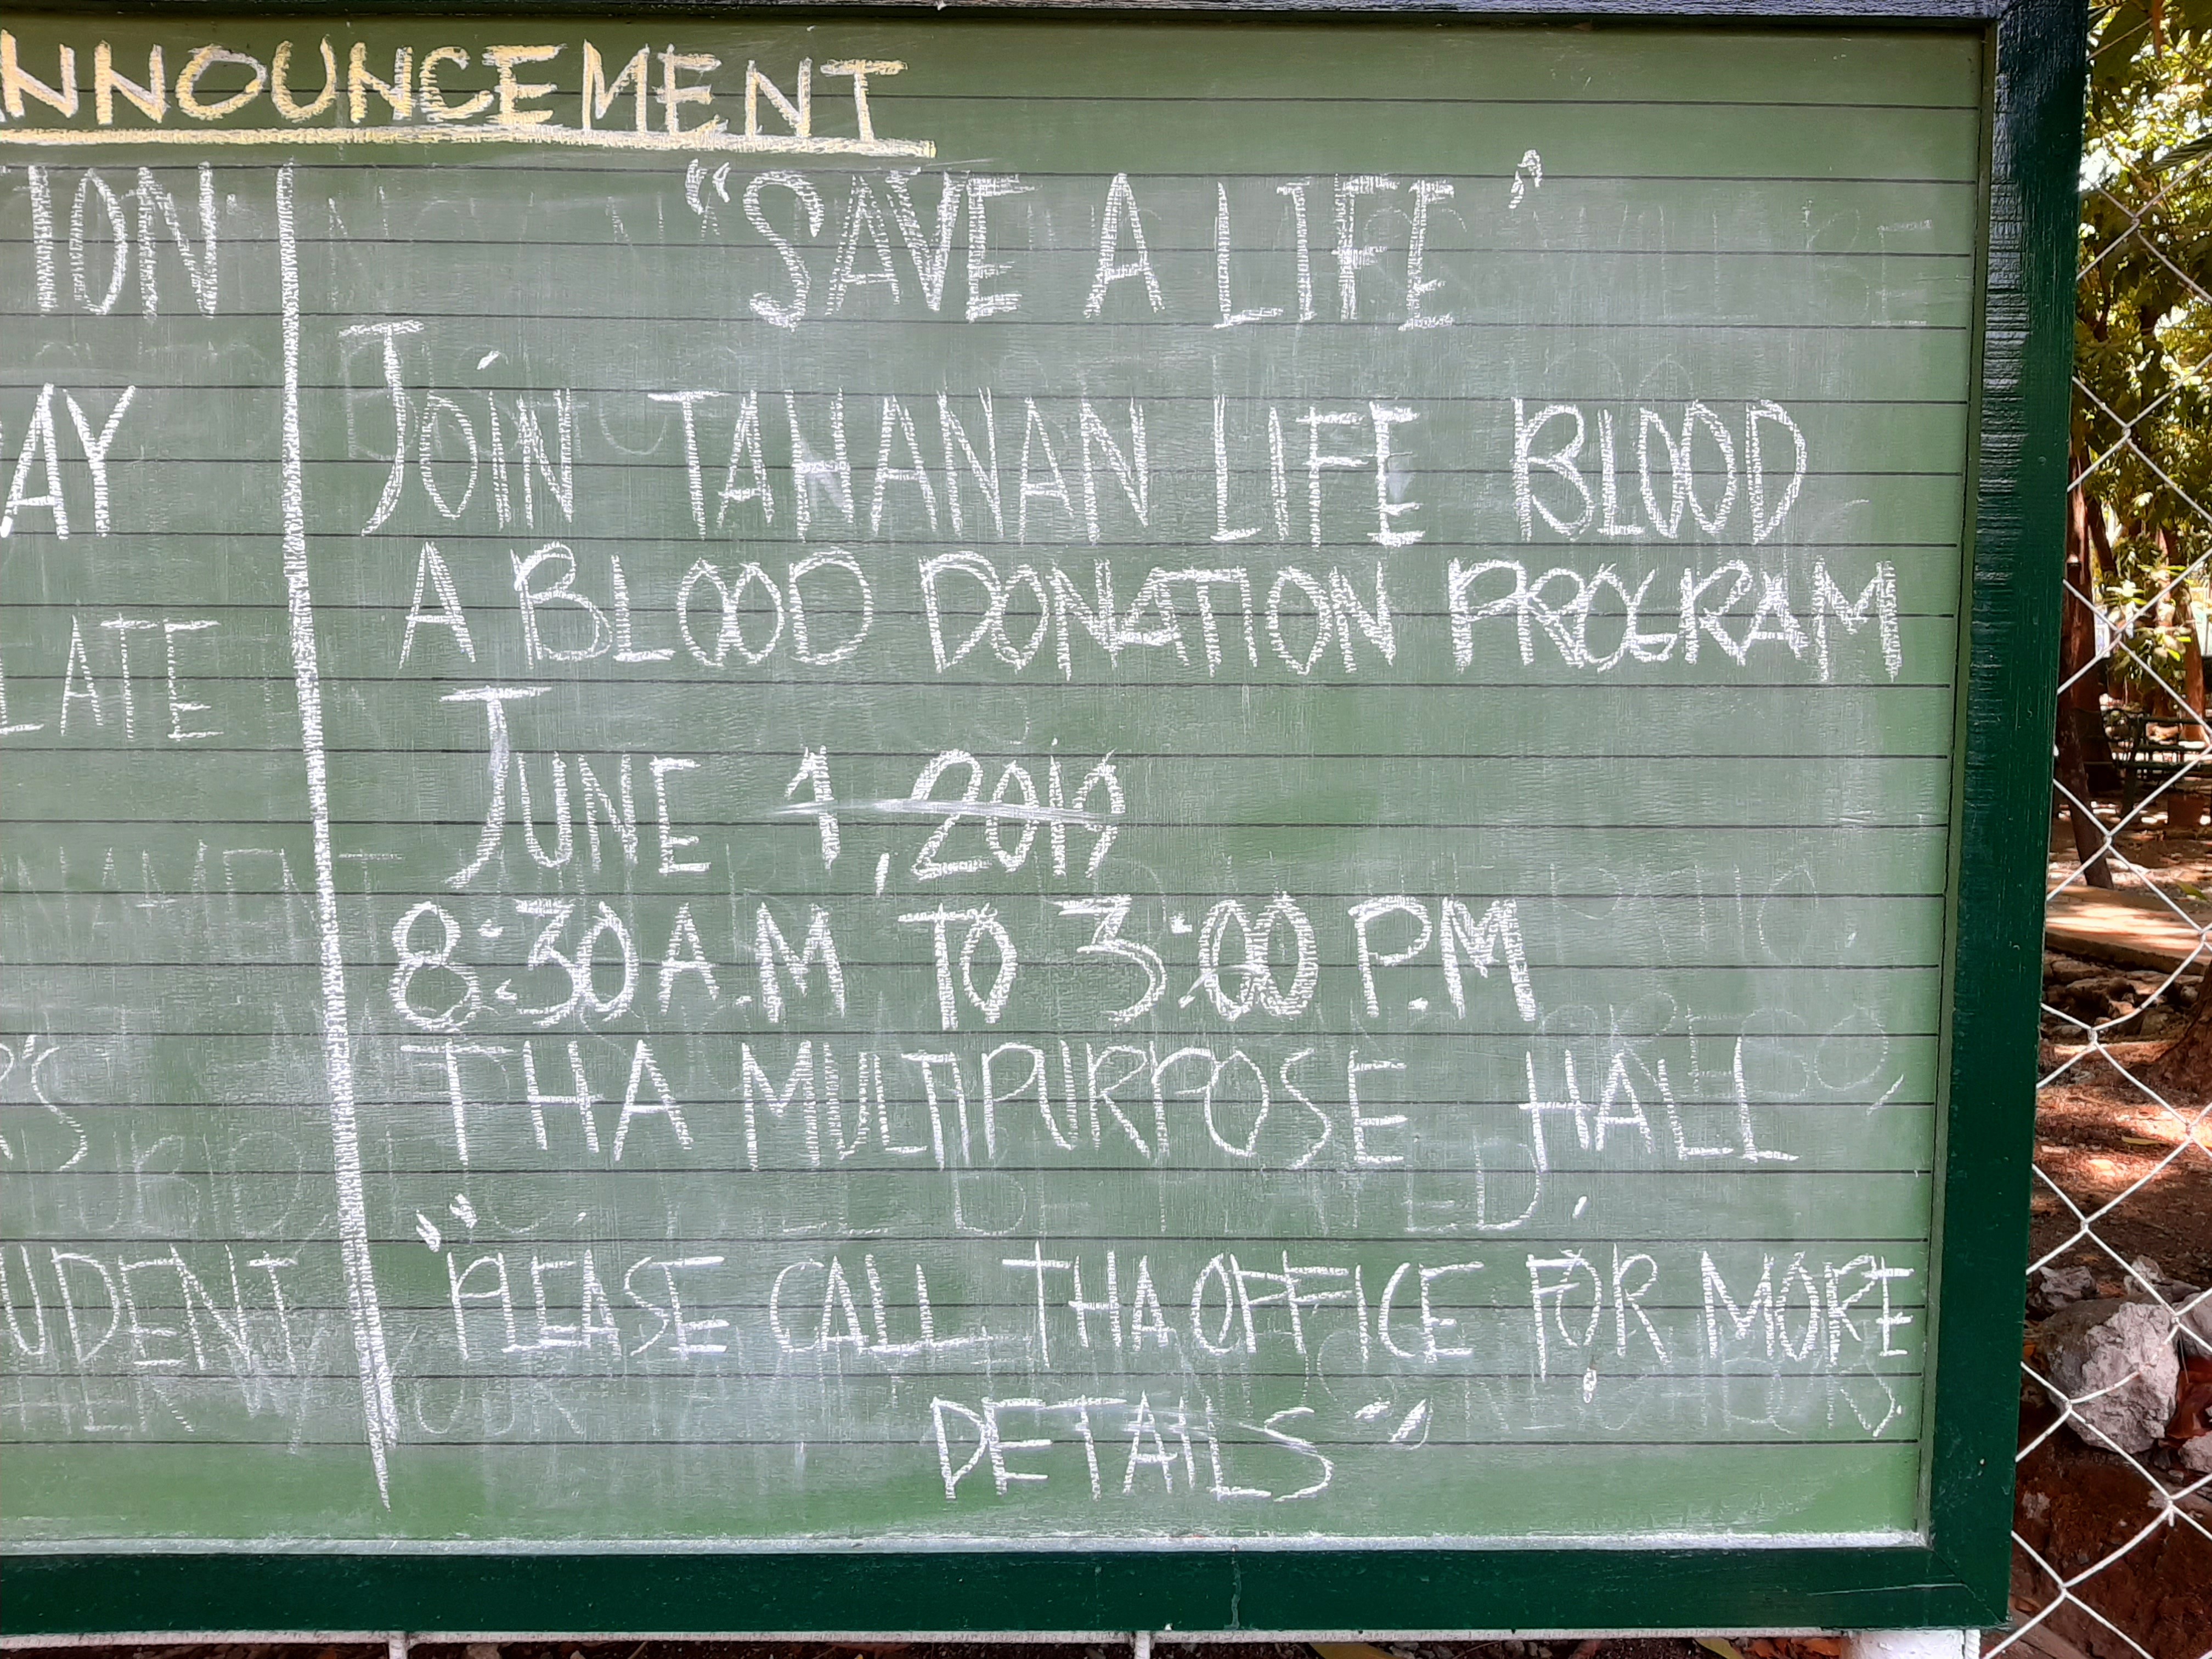 ANNOUNCEMENT
TION.
AY
LATE
R'S
UDENT
"SAVE A LIFE"
JOIN TAHANAN LIFE BLOOD
A BLOOD DONATION PROGRAM
JUNE 1, 2019
8:30 A.M TO 3:00 P.M
THA MULTIPURPOSE HALL
"PLEASE CALL THA OFFICE FOR MORE
DETAILS"